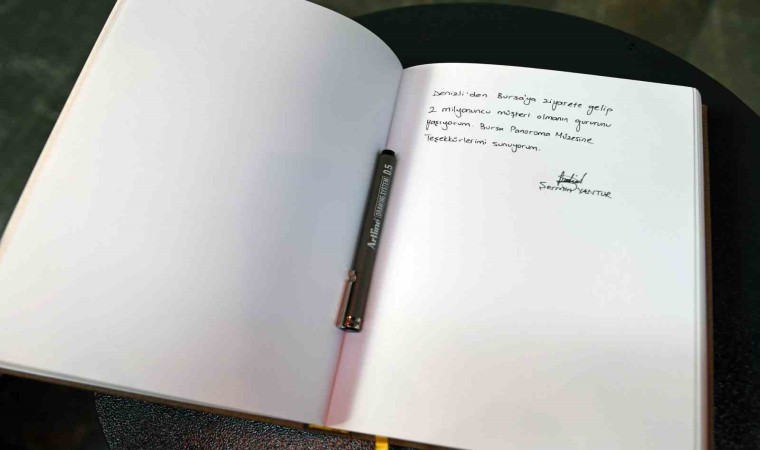 Denizli'den Bursa'ya ziyarete gelip
2 milyonuncu müşteri olmanın gururunu
yaşıyorum. Bursa Panorama Müzesine
Teşekkürlerimi sunuyorum.
YANTUR
Artline DRAWING SYSTEM 0.5